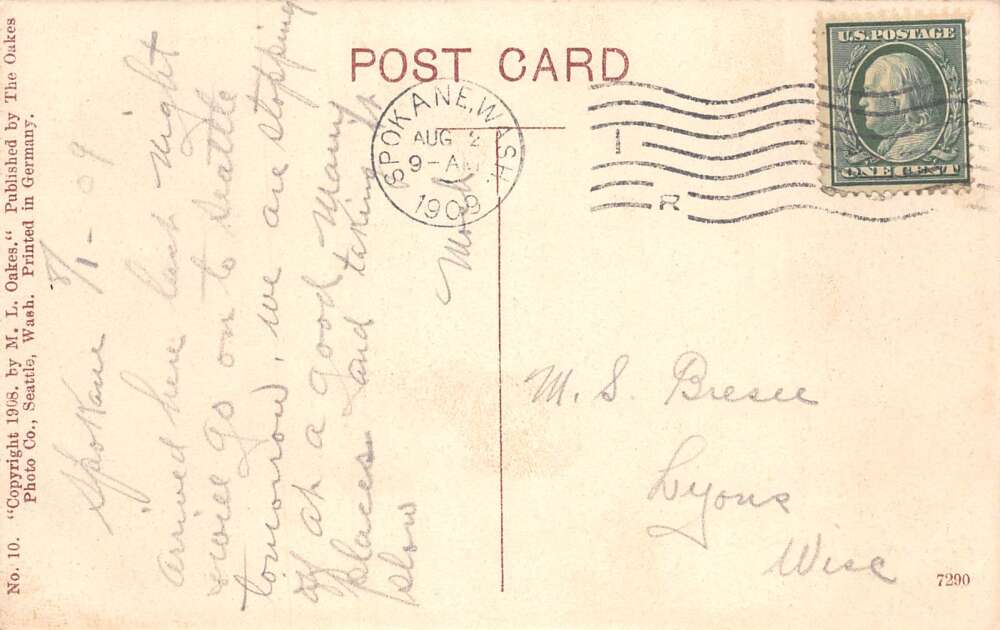 POST CARD
U.S. POSTAGE
ONE CENT
SPOKANE, WASH.
AUG 2
9-AM
1909
1
R
Spokane 8/1-09
arrived here last night
will go on to Seattle
tomorrow, we are stopping
off at a good many
places and taking it
slow
M. S. Bresee
Lyons
Wisc
No. 10. "Copyright 1908. by M. L. Oakes." Published by The Oakes
Photo Co., Seattle, Wash. Printed in Germany.
7290